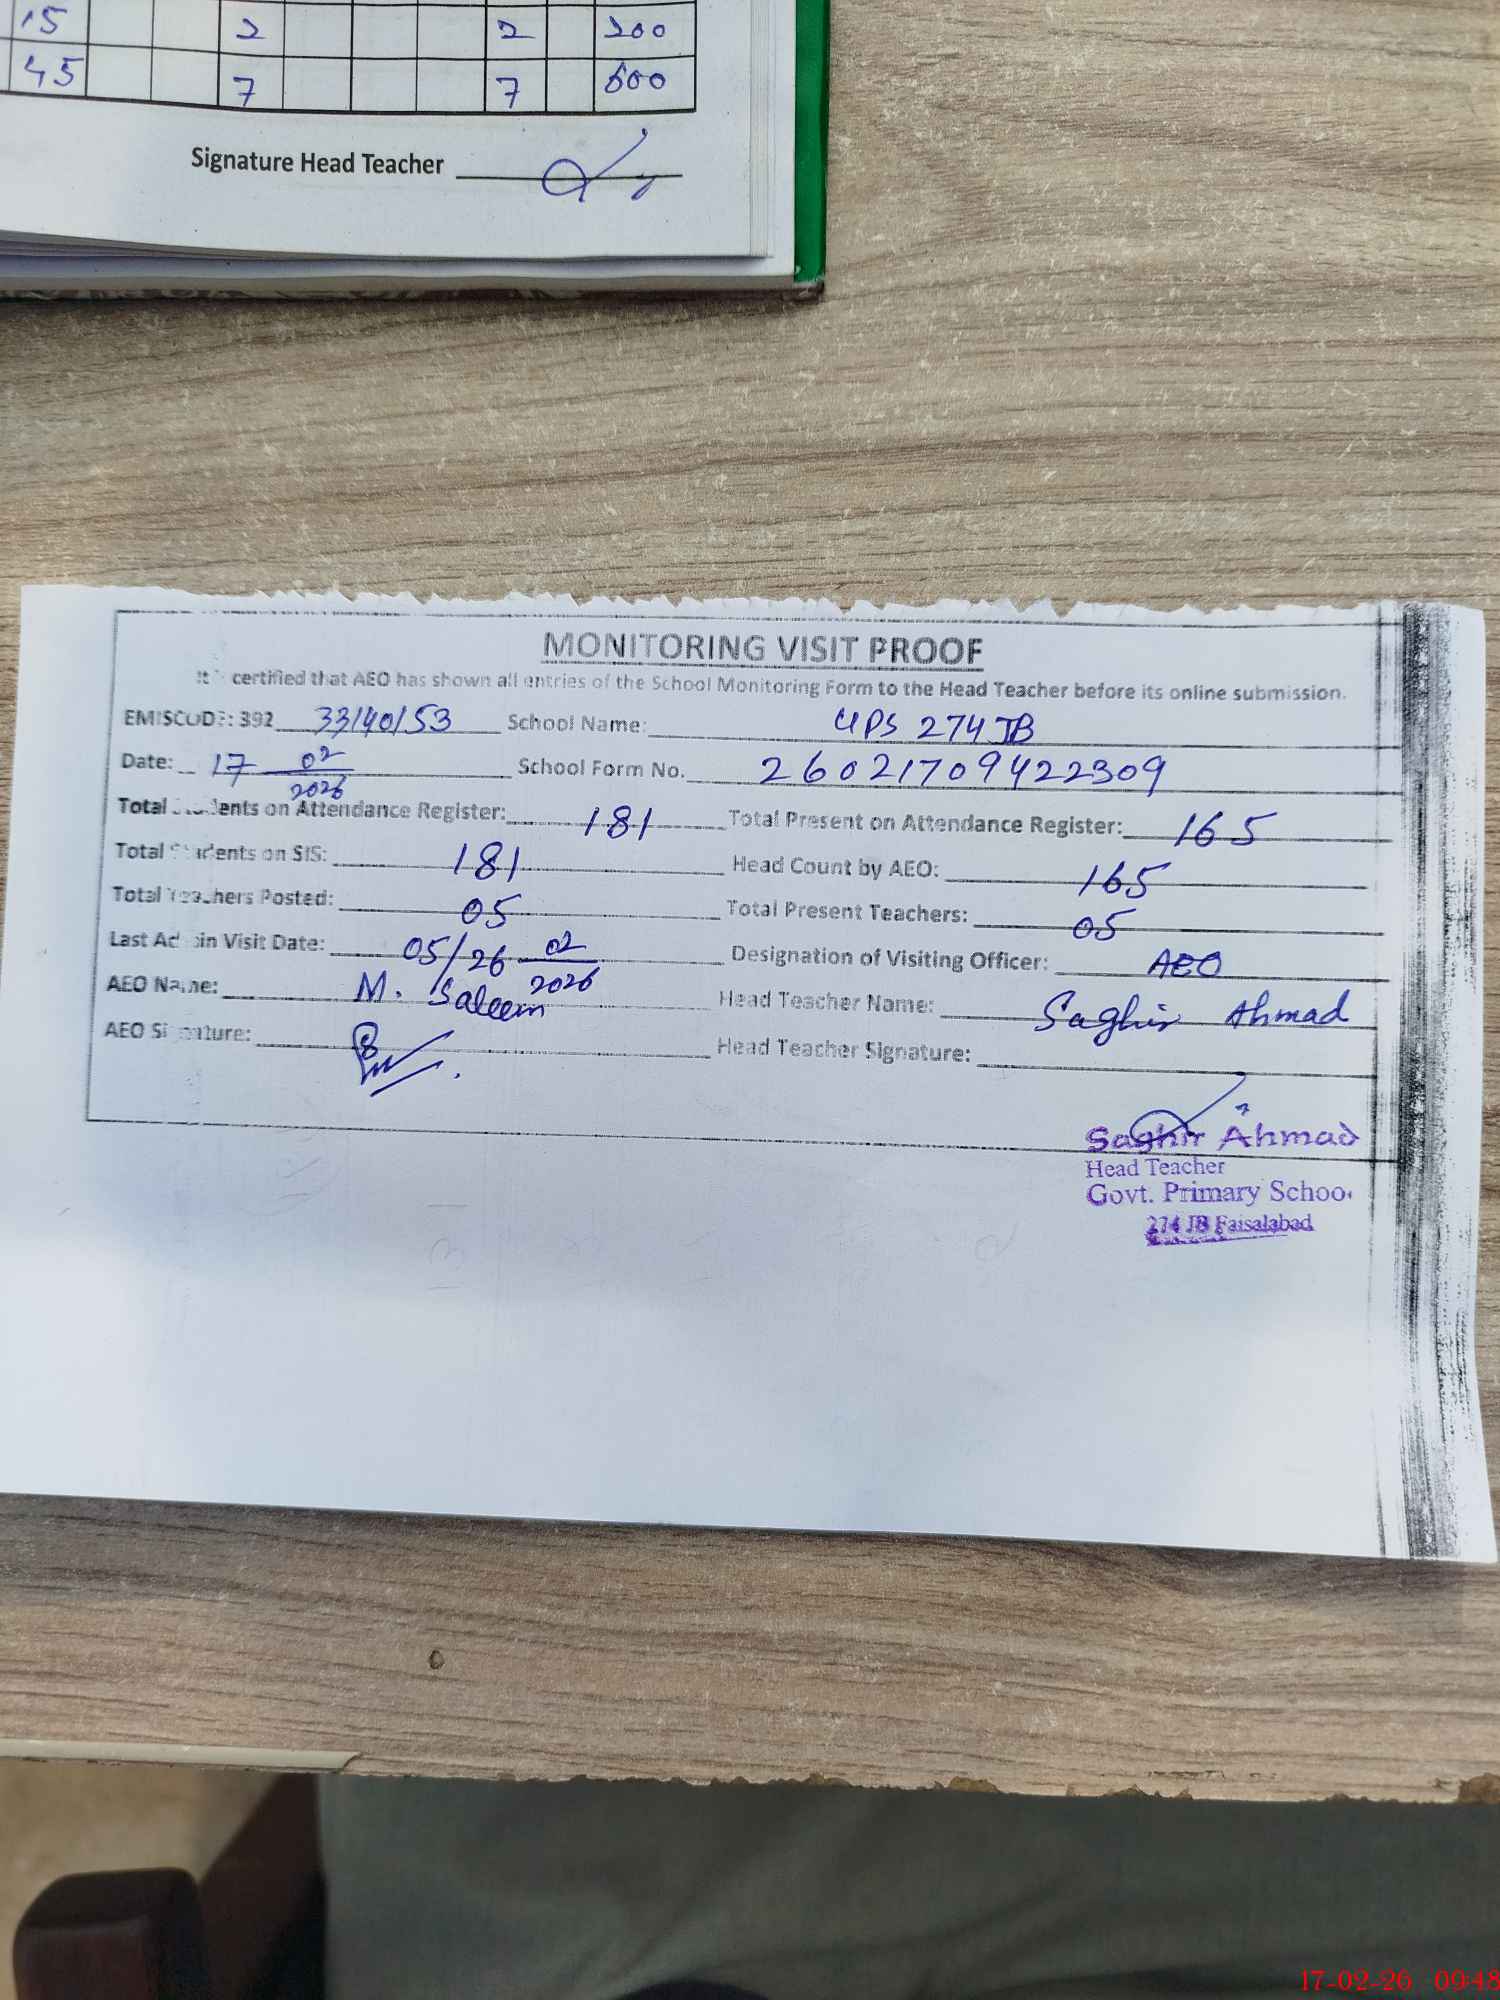 15 2 2 200
45 7 7 600
Signature Head Teacher
MONITORING VISIT PROOF
It certified that AEO has shown all entries of the School Monitoring Form to the Head Teacher before its online submission.
EMISCODE: 392 33140153 School Name: GPS 274 JB
Date: 17 02 2026 School Form No. 26021709422309
Total Students on Attendance Register: 181 Total Present on Attendance Register: 165
Total Students on SIS: 181 Head Count by AEO: 165
Total Teachers Posted: 05 Total Present Teachers: 05
Last Admin Visit Date: 05/26 02 2026 Designation of Visiting Officer: AEO
AEO Name: M. Saleem Head Teacher Name: Saghir Ahmad
AEO Signature: Head Teacher Signature:
Saghir Ahmad
Head Teacher
Govt. Primary School
274 JB Faisalabad
17-02-26 09:48